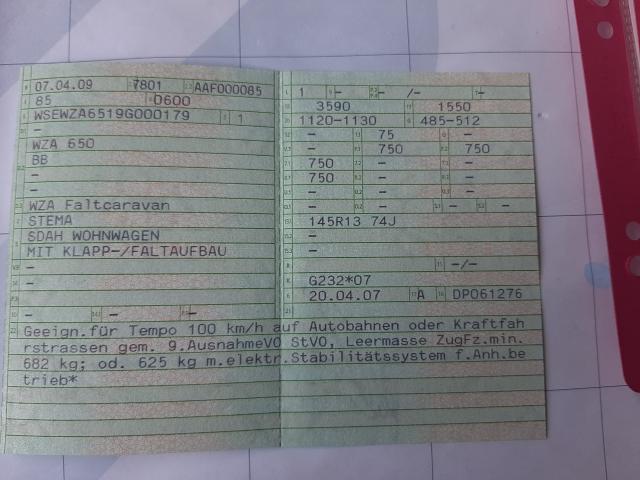 07.04.09 7801 AAF000085
85 D600
WSEWZA6519G000179 1
-
WZA 650
BB
-
-
WZA Faltcaravan
STEMA
SDAH WOHNWAGEN
MIT KLAPP-/FALTAUFBAU
-
-
- - -
1 - /- -
3590 1550
1120-1130 485-512
- 75 -
- 750 750
750 -
750 -
- -
- - - -
145R13 74J
-
-
-/-
G232*07
20.04.07 A DP061276
Geeign.für Tempo 100 km/h auf Autobahnen oder Kraftfah
rstrassen gem. 9.AusnahmeVO StVO, Leermasse ZugFz.min.
682 kg; od. 625 kg m.elektr.Stabilitätssystem f.Anh.be
trieb*